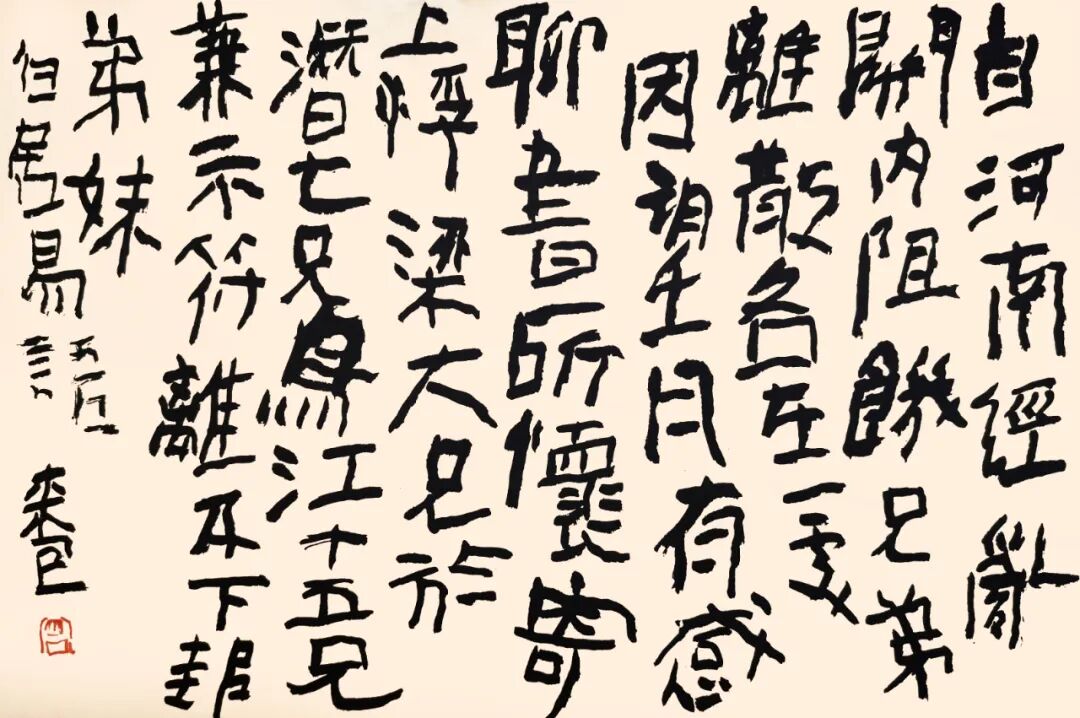 自河南經亂
關內阻饑兄弟
離散各在一處
因望月有感
聊書所懷寄
上浮梁大兄於
潛七兄烏江十五兄
兼示符離及下邽
弟妹
白居易語